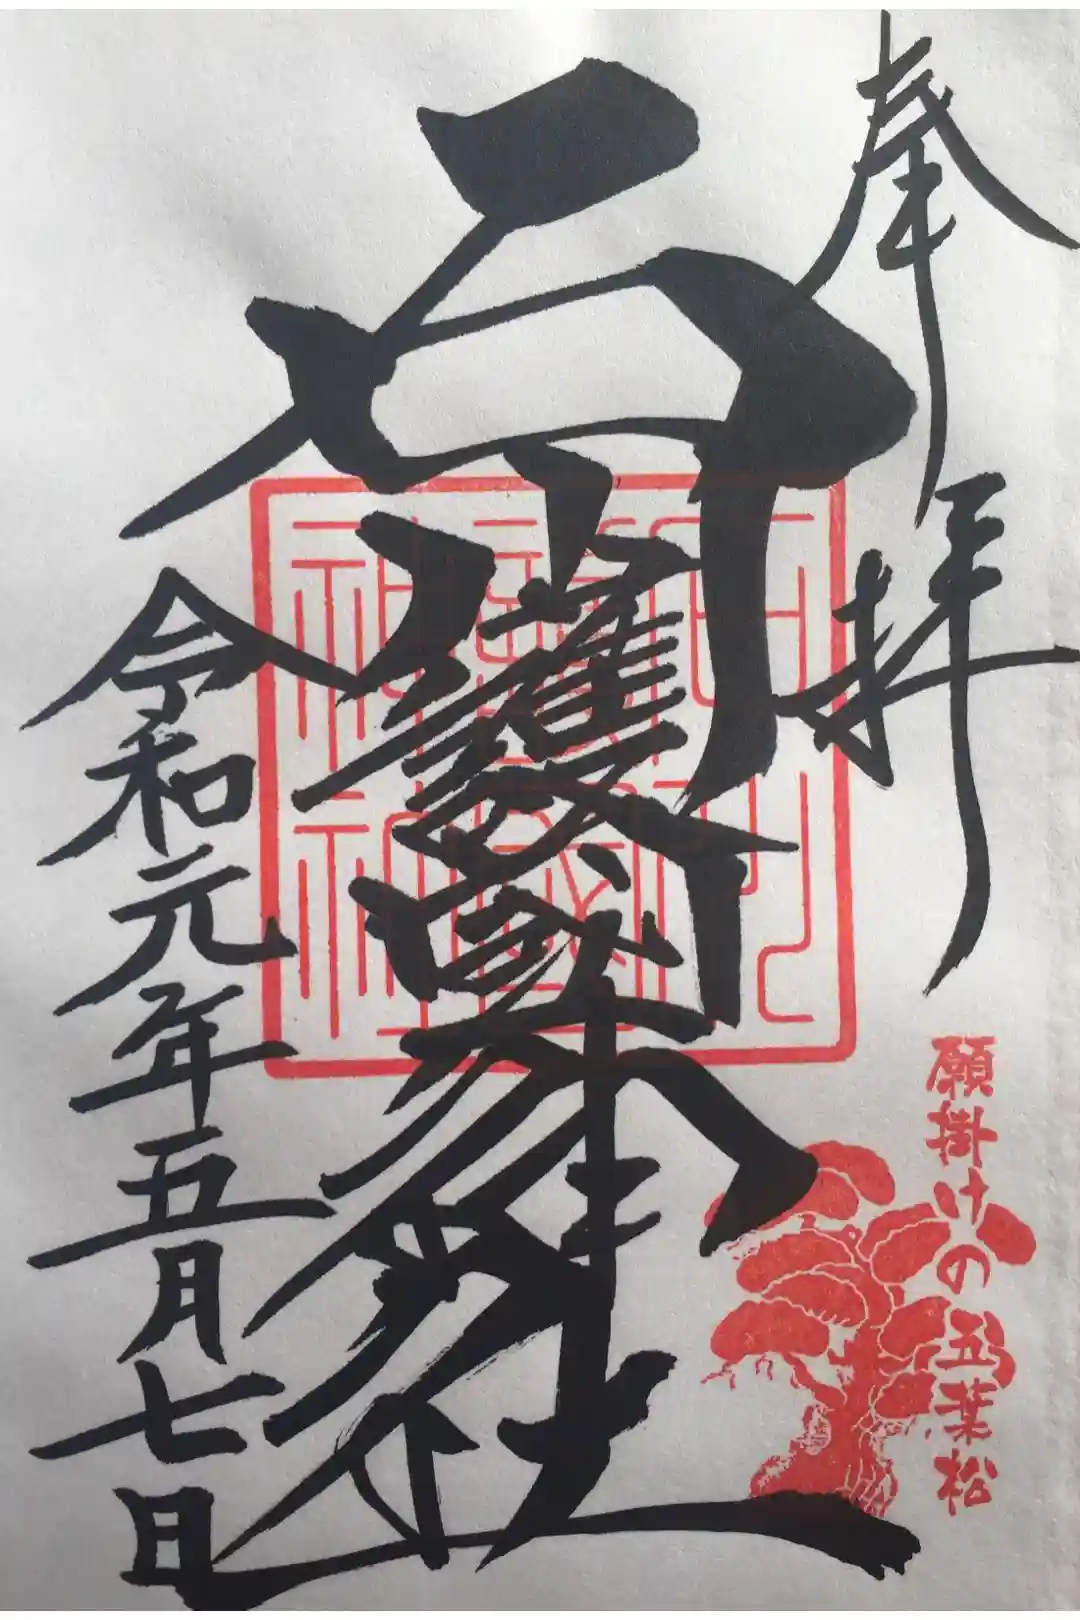 奉拝
護國神社
令和元年五月七日
願掛けの五葉松